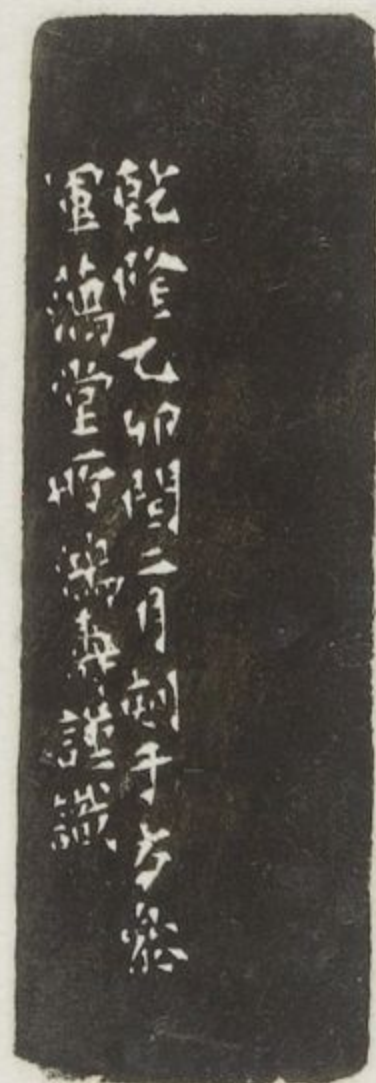 乾隆乙卯閏二月刻于方參
軍藕堂所鴻壽謹識